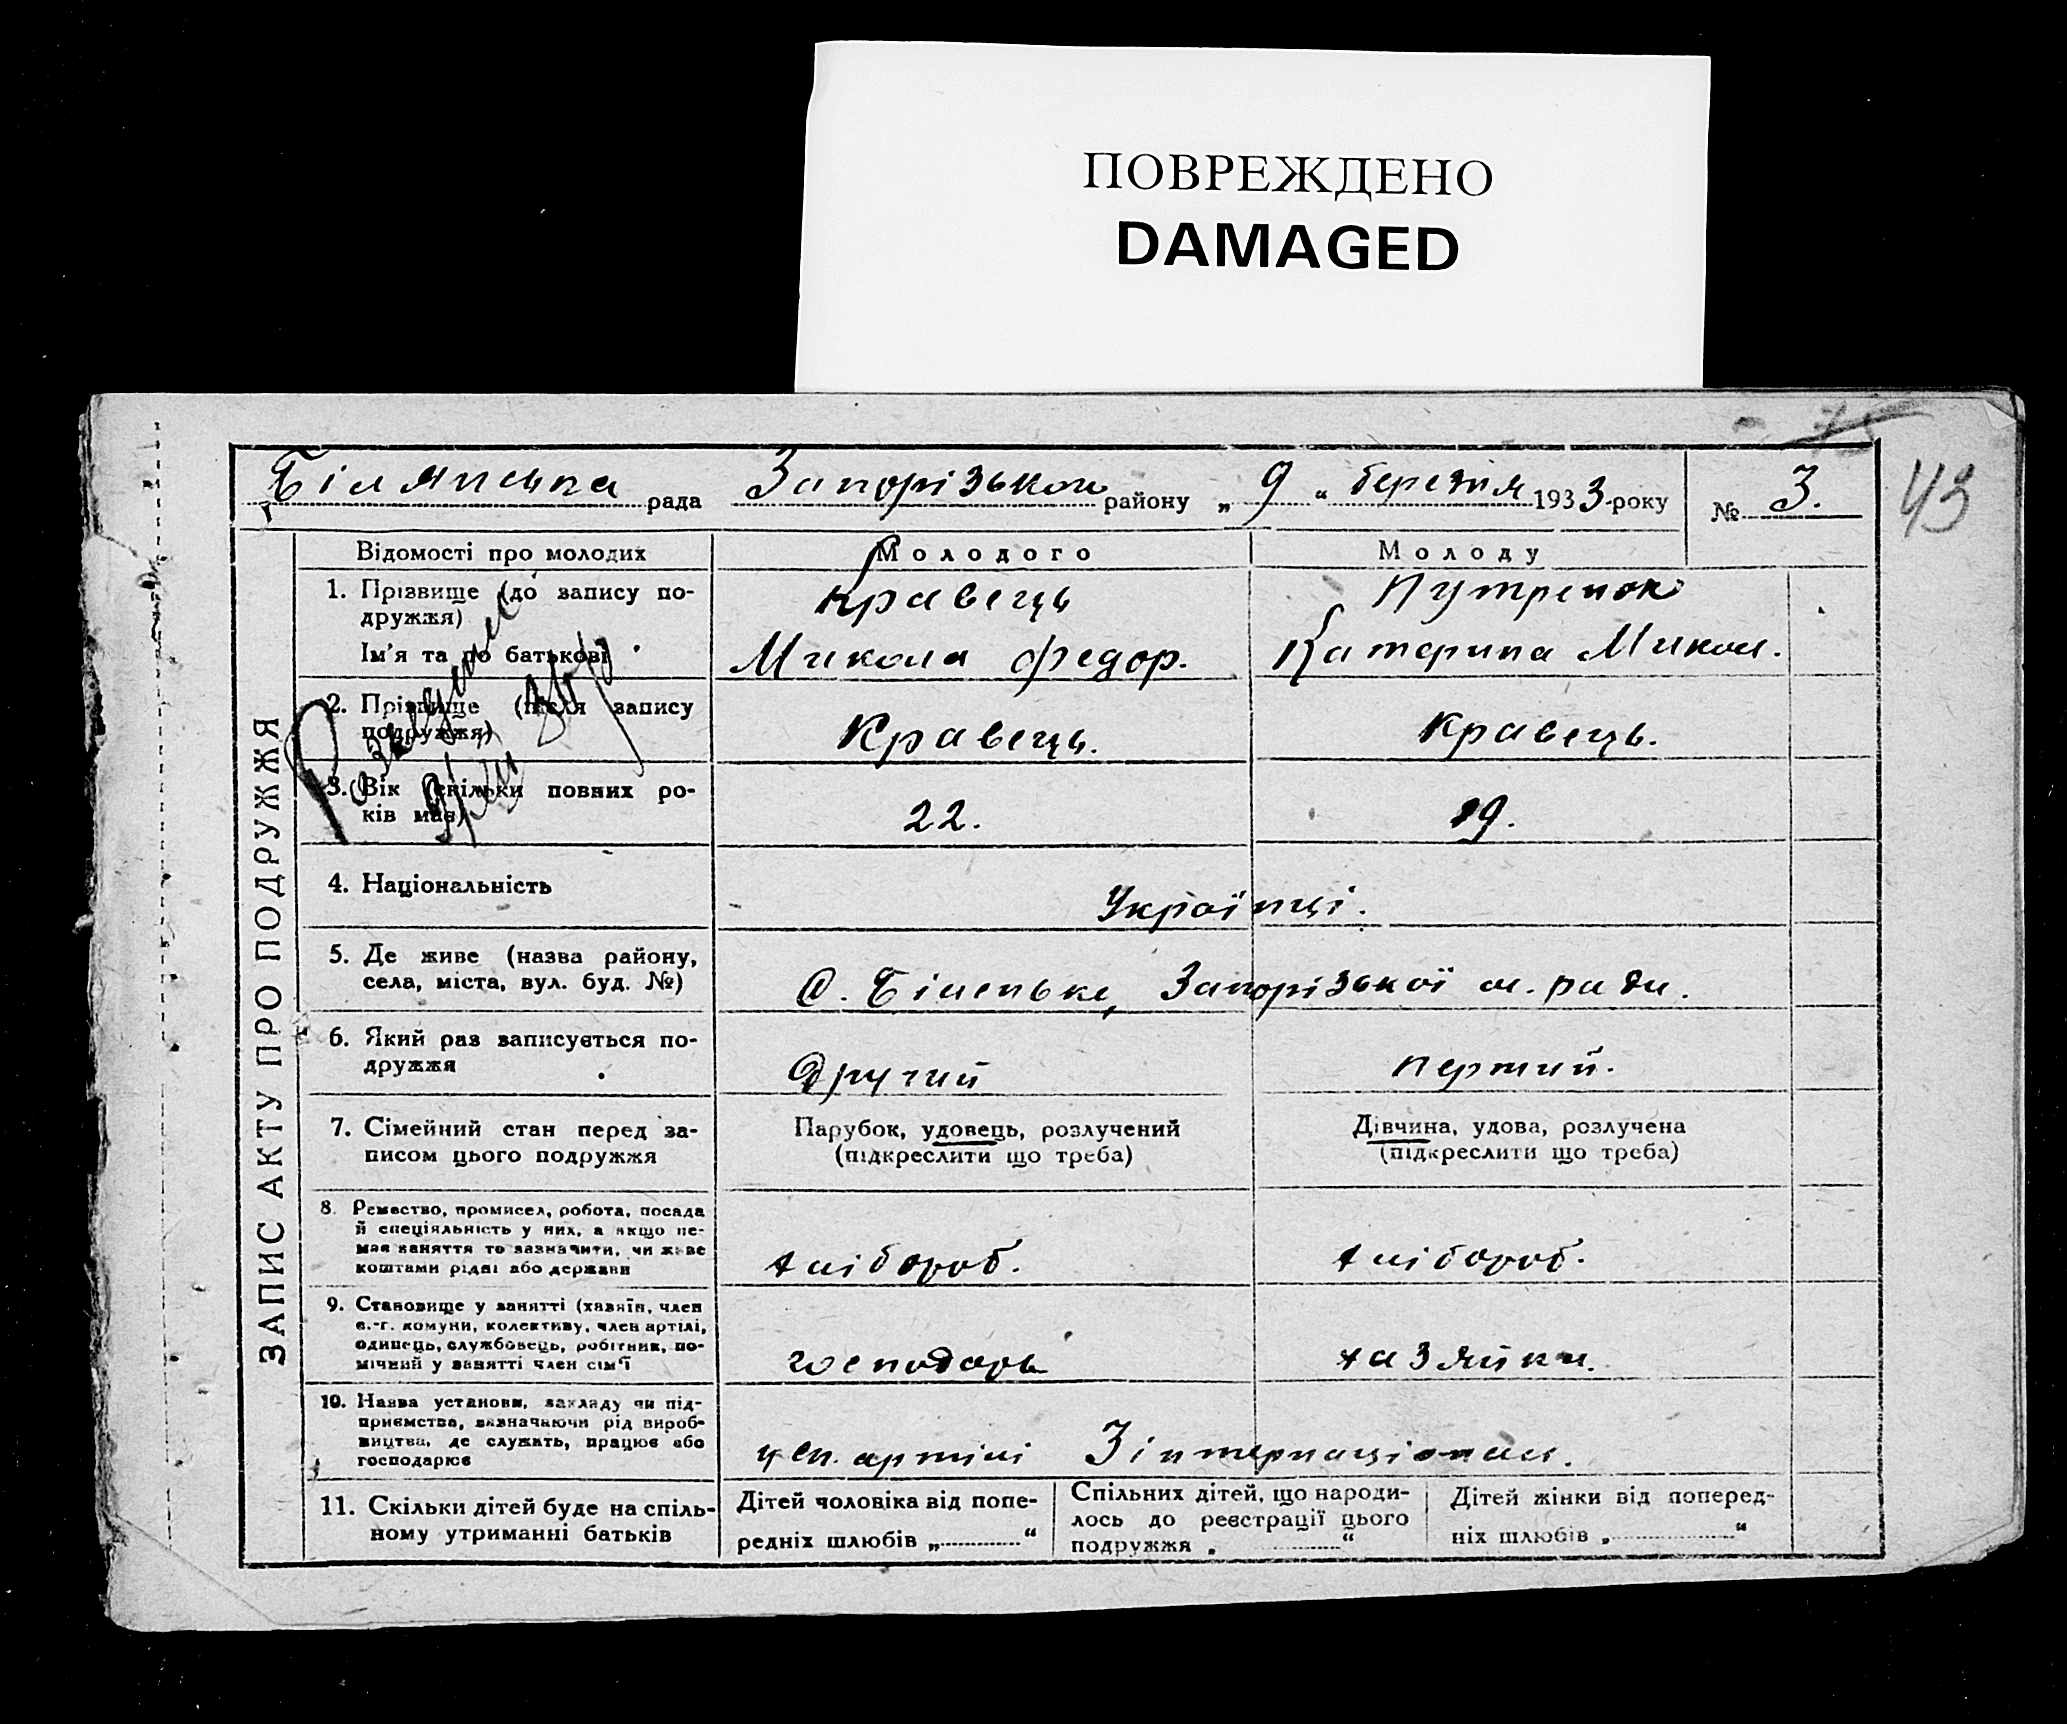 ПОВРЕЖДЕНО
DAMAGED
75
43
Білянська рада Запорізького району „ 9 “ березня 1933 року № 3.
ЗАПИС АКТУ ПРО ПОДРУЖЖЯ
Відомості про молодих Молодого Молоду
1. Прізвище (до запису по-
дружжя) Кравець
Ім'я та по батькові Микола Федор. Катерина Микол.
2. Прізвище (після запису
подружжя) Кравець. Кравець.
3. Вік (скільки повних ро-
ків має) 22. 19.
4. Національність Українці.
5. Де живе (назва району,
села, міста, вул. буд. №) С. Біленьке, Запорізької м. ради.
6. Який раз записується по-
дружжя Другий перший.
7. Сімейний стан перед за-
писом цього подружжя
Парубок, удовець, розлучений
(підкреслити що треба)
Дівчина, удова, розлучена
(підкреслити що треба)
8. Ремество, промисел, робота, посада
й спеціяльність у них, а якщо не-
має заняття то зазначити, чи живе
коштами рідні або держави
хлібороб. хлібороб.
9. Становище у занятті (хазяїн, член
с.-г. комуни, колективу, член артілі,
одинець, службовець, робітник, по-
мічний у занятті член сім'ї
господарь хазяйка.
10. Назва установи, закладу чи під-
приємства, зазначаючи рід вироб-
ництва, де служить, працює або
господарює
чл. артілі 3 інтернаціонал.
11. Скільки дітей буде на спіль-
ному утриманні батьків
Дітей чоловіка від попе-
редніх шлюбів „ “
Спільних дітей, що народи-
лось до реєстрації цього
подружжя „ “
Дітей жінки від поперед-
ніх шлюбів „ “